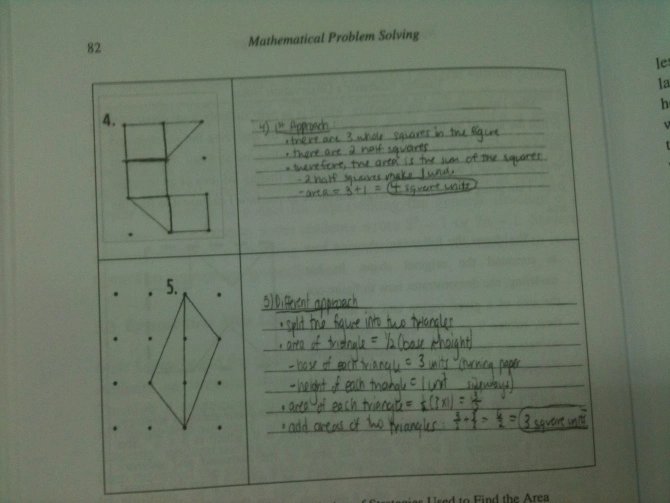 82
Mathematical Problem Solving
4.
4) 1st Approach
• there are 3 whole squares in the figure
• there are 2 half squares
• therefore, the area is the sum of the squares
- 2 half squares make 1 unit.
- area = 3 + 1 = 4 square units
5.
5) Different approach
• split the figure into two triangles
• area of triangle = 1/2 (base × height)
- base of each triangle = 3 units (turning paper
- height of each triangle = 1 unit sideways)
• area of each triangle = 1/2 (3×1) = 3/2
• add areas of two triangles: 3/2 + 3/2 = 6/2 = 3 square units
of Strategies Used to Find the Area